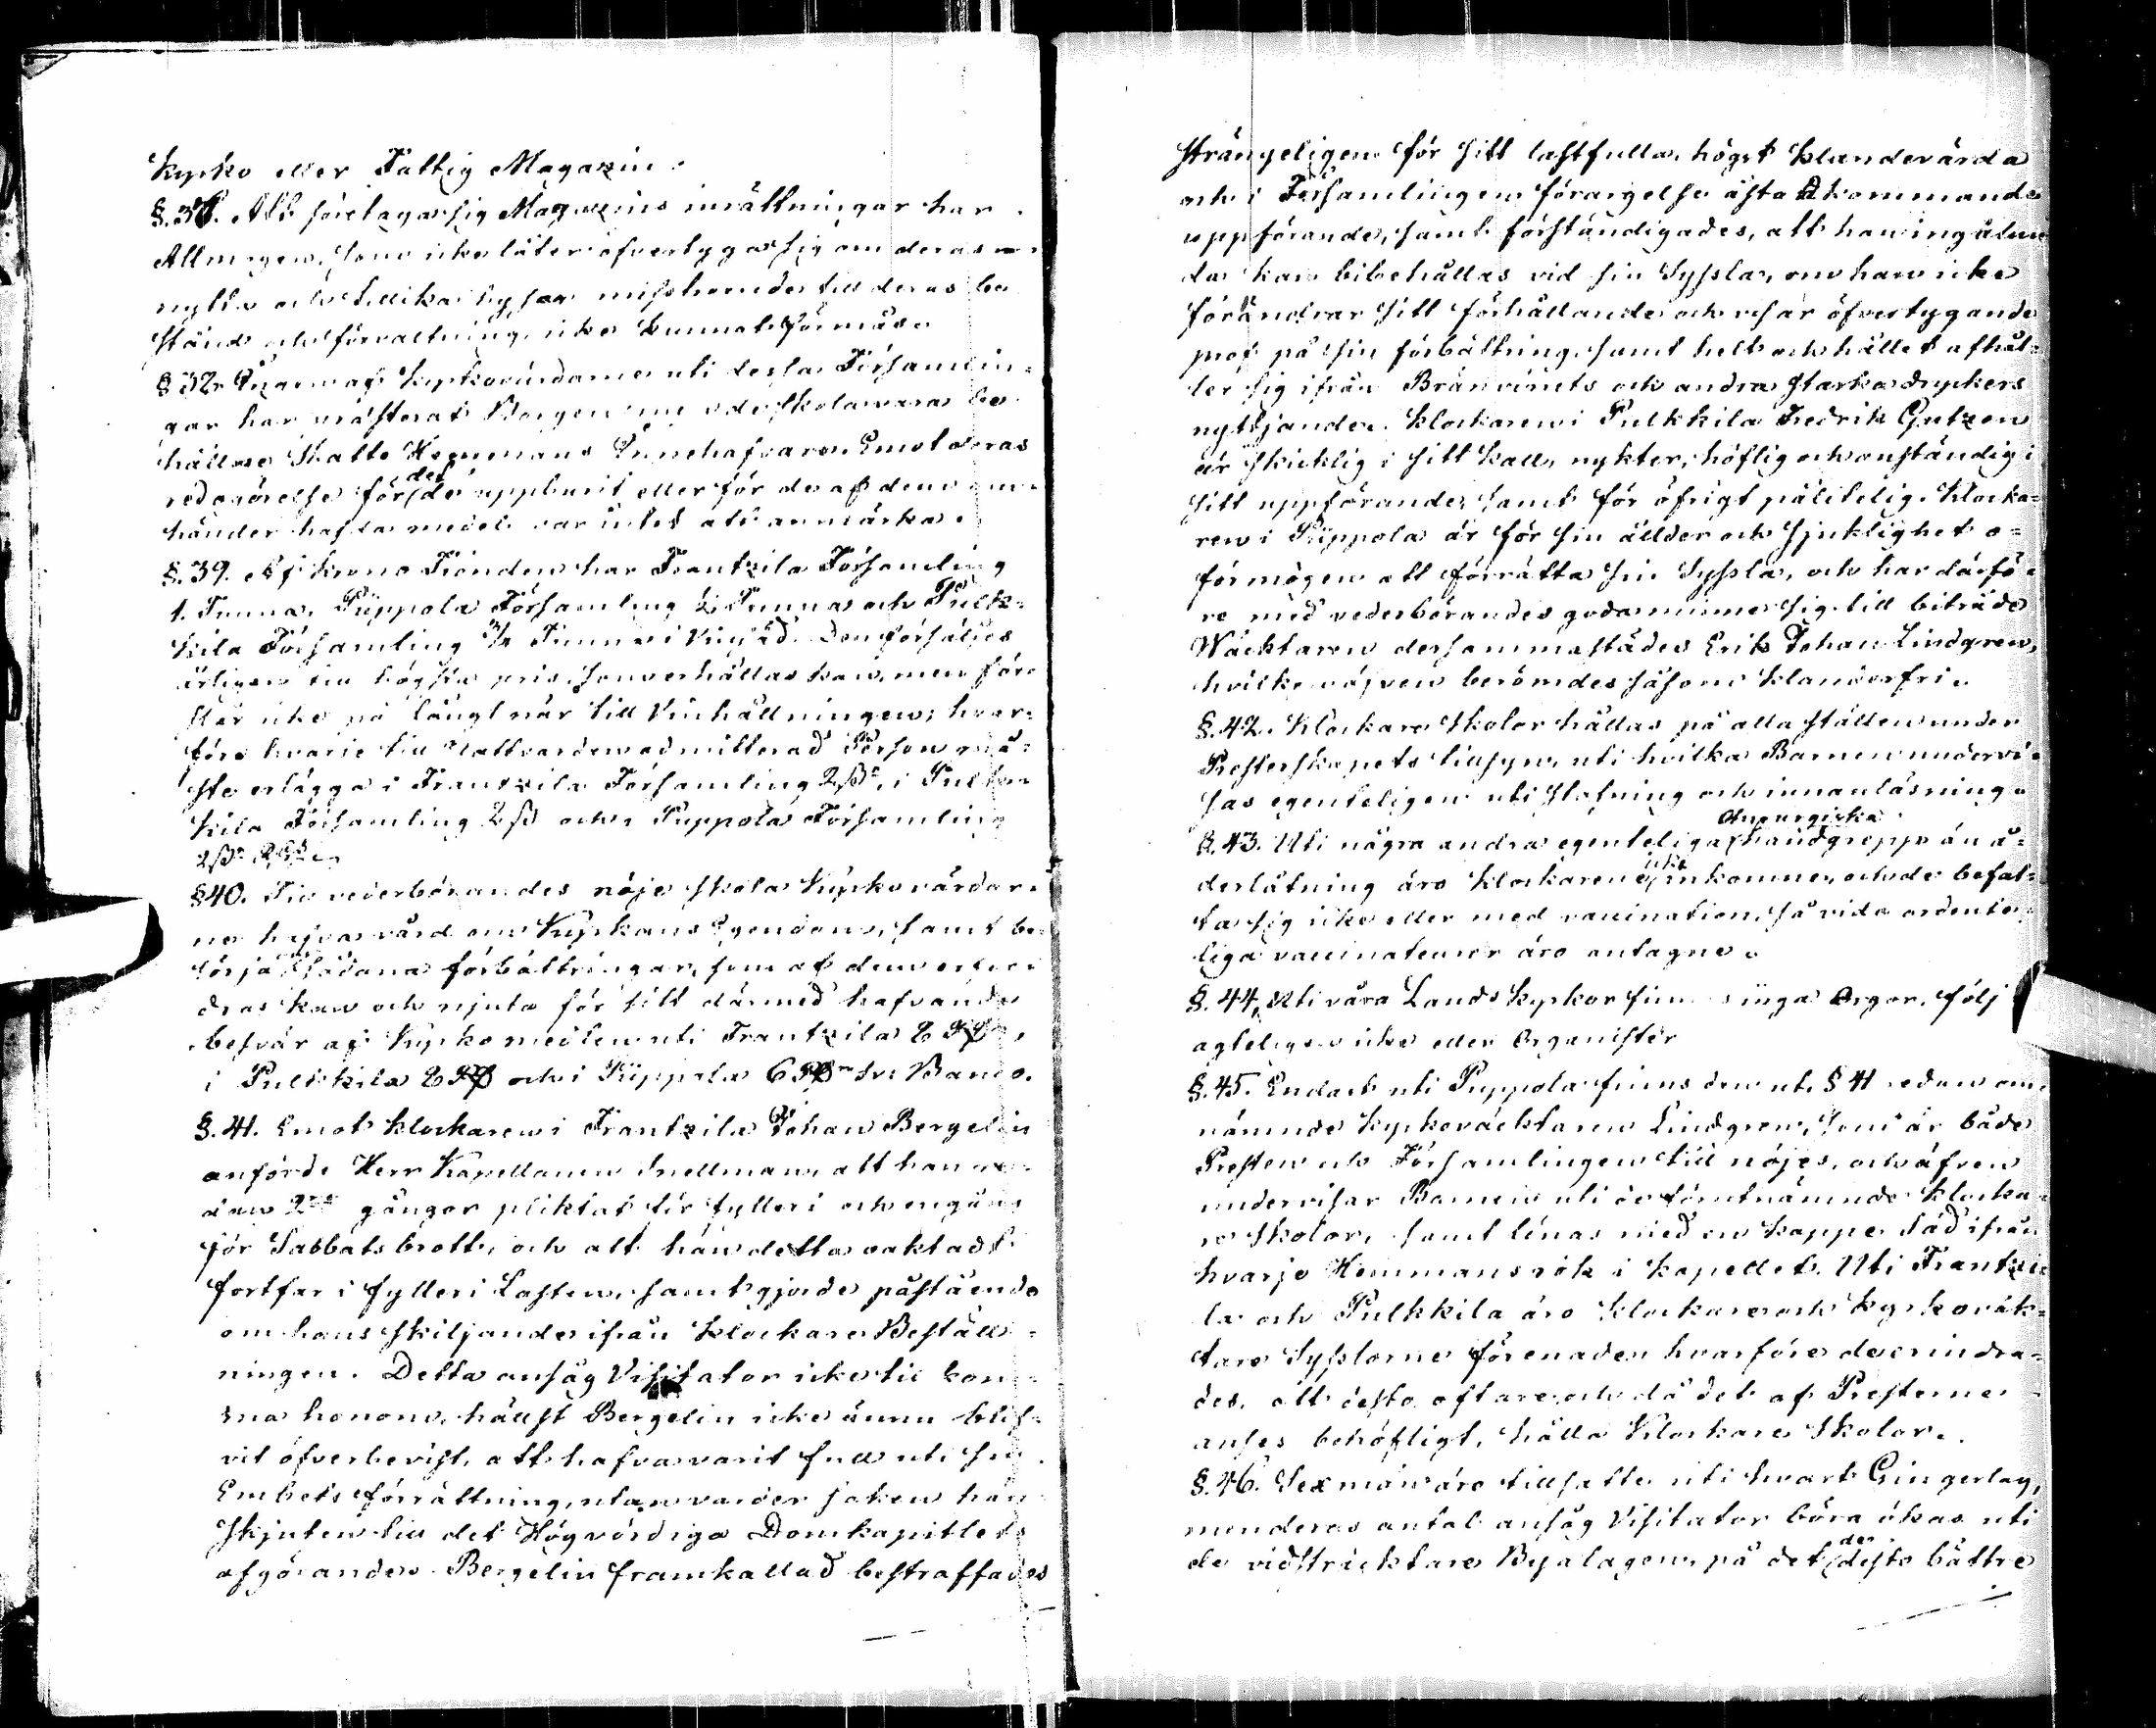 Kyrko eller Fattig Magazin.
§. 37. Att företaga sig Magazins inrättningar har
Allmogen, som icke låter öfvertyga sig om deras
nytta och tillika hyser misstroende till deras be
stånd och förvaltning, icke kunnat förmås.
§ 38. Ingen af Kyrkovärdarne uti dessa Församlin-
gar har præsterat Borgen, de skola vara be
hållne Skatte Hemmans Innehafvare. Emot deras
redogörelse för det de uppburit eller för de af dem om
händer hafda medel var intet att anmärka.
§. 39. Af Krono Tionden har Frantzila Församling
1. Tunna, Piippola Församling ½ Tunna och Pulk-
kila Församling ½ Tunna i Vinsäd. Den försäljes
årligen till högsta pris, som erhållas kan, men före
slår icke på långt när till Vinhållningen; hvar-
före hvarje till Nattvarden admitterad Person må-
ste erlägga i Frantzila Församling 2 ss, i Pulk-
kila Församling 2 ss och i Piippola Församling
2 ss
§ 40. Till vederbörandes nöje skola Kyrkovärdar
ne hafva vård om Kyrkans Egendom, samt be-
sörja sådana förbättringar, som af dem
dras kan och njuta för sitt därmed hafvande
besvär af Kyrkomedlen uti Frantzila
i Pulkkila och i Piippola 6 Banco.
§. 41. Emot Klockaren i Frantzila Johan Bergelin
anförde Herr Kapellanen Snellman, att han re-
dan 2ne gånger pliktat för fylleri och engång
för Sabbatsbrott, och att han detta oaktadt
fortfar i fylleri Lasten, samt gjorde påstående
om hans skiljande ifrån Klockare Beställ-
ningen. Detta ansåg Visitator icke till kom-
ma honom, hällst Bergelin icke ännu blif-
vit öfverbevist, att hafva varit full uti sin
Embets förrättning, utan varder saken hän
skjuten till det Högvördiga Domkapitlets
afgörande. Bergelin framkallad bestraffades
strängeligen för sitt lastfulla, högst klandervärda
och i Församlingen förargelse åstadkommande
uppförande, samt förständigades, att han ingalun
da kan bibehållas vid sin Syssla, om han icke
förändrar sitt förhållande och visar öfvertygande
prof på sin förbättring, samt helt och hållet afhål-
ler sig ifrån Bränvinets och andra starka dryckers
nyttjande. Klockaren i Pulkkila Fredrik Gutzen
är skicklig i sitt kall, nykter, höflig och anständig i
sitt uppförande, samt för öfrigt pålitelig. Klocka-
ren i Piippola är för sin ålder och sjuklighet o-
förmögen att förrätta sin Syssla, och har därfö-
re med vederbörandes godaminne sig till biträde
Wäcktaren dersammastädes Erik Johan Lindgren,
hvilke äfven berömdes såsom klanderfri.
§. 42. Klockare skolor hållas på alla ställen under
Presterskapets tillsyn, uti hvilka Barnen undervi-
sas egenteligen uti stafning och innanläsning.
§. 43. Uti några andra egenteliga Chirurgiska handgrepp än å-
derlåtning äro Klockarena icke inkomne, och de befat-
ta sig icke eller med vaccination, så vida ordente-
liga vaccinateurer äro antagne.
§. 44. Uti våra Lands kyrkor finnas inga Orgor, följ
agteligen icke eller Organister
§. 45. Endast uti Piippola finns den uti § 41 redan om-
nämnde Kyrkoväcktaren Lindgren, som är både
Presten och Församlingen till nöjes, och äfven
undervisar Barnen uti de förutnämnde Klocka-
re skolor, samt lönas med en kappe säd ifrån
hvarje Hemmansrök i kapellet. Uti Frantzi
la och Pulkkila äro Klockare och Kyrkoväk-
tare Sysslorne förenade, hvarföre de erindra-
des, att desto oftare och då det af Presterne
anses behöfligt, hålla Klockare Skolor.
§. 46. Sexmän äro tillsatte uti hvart Gingerlag,
men deras antal ansåg Visitator böra ökas uti
de vidsträcktare Byalagen, på det de desto bättre